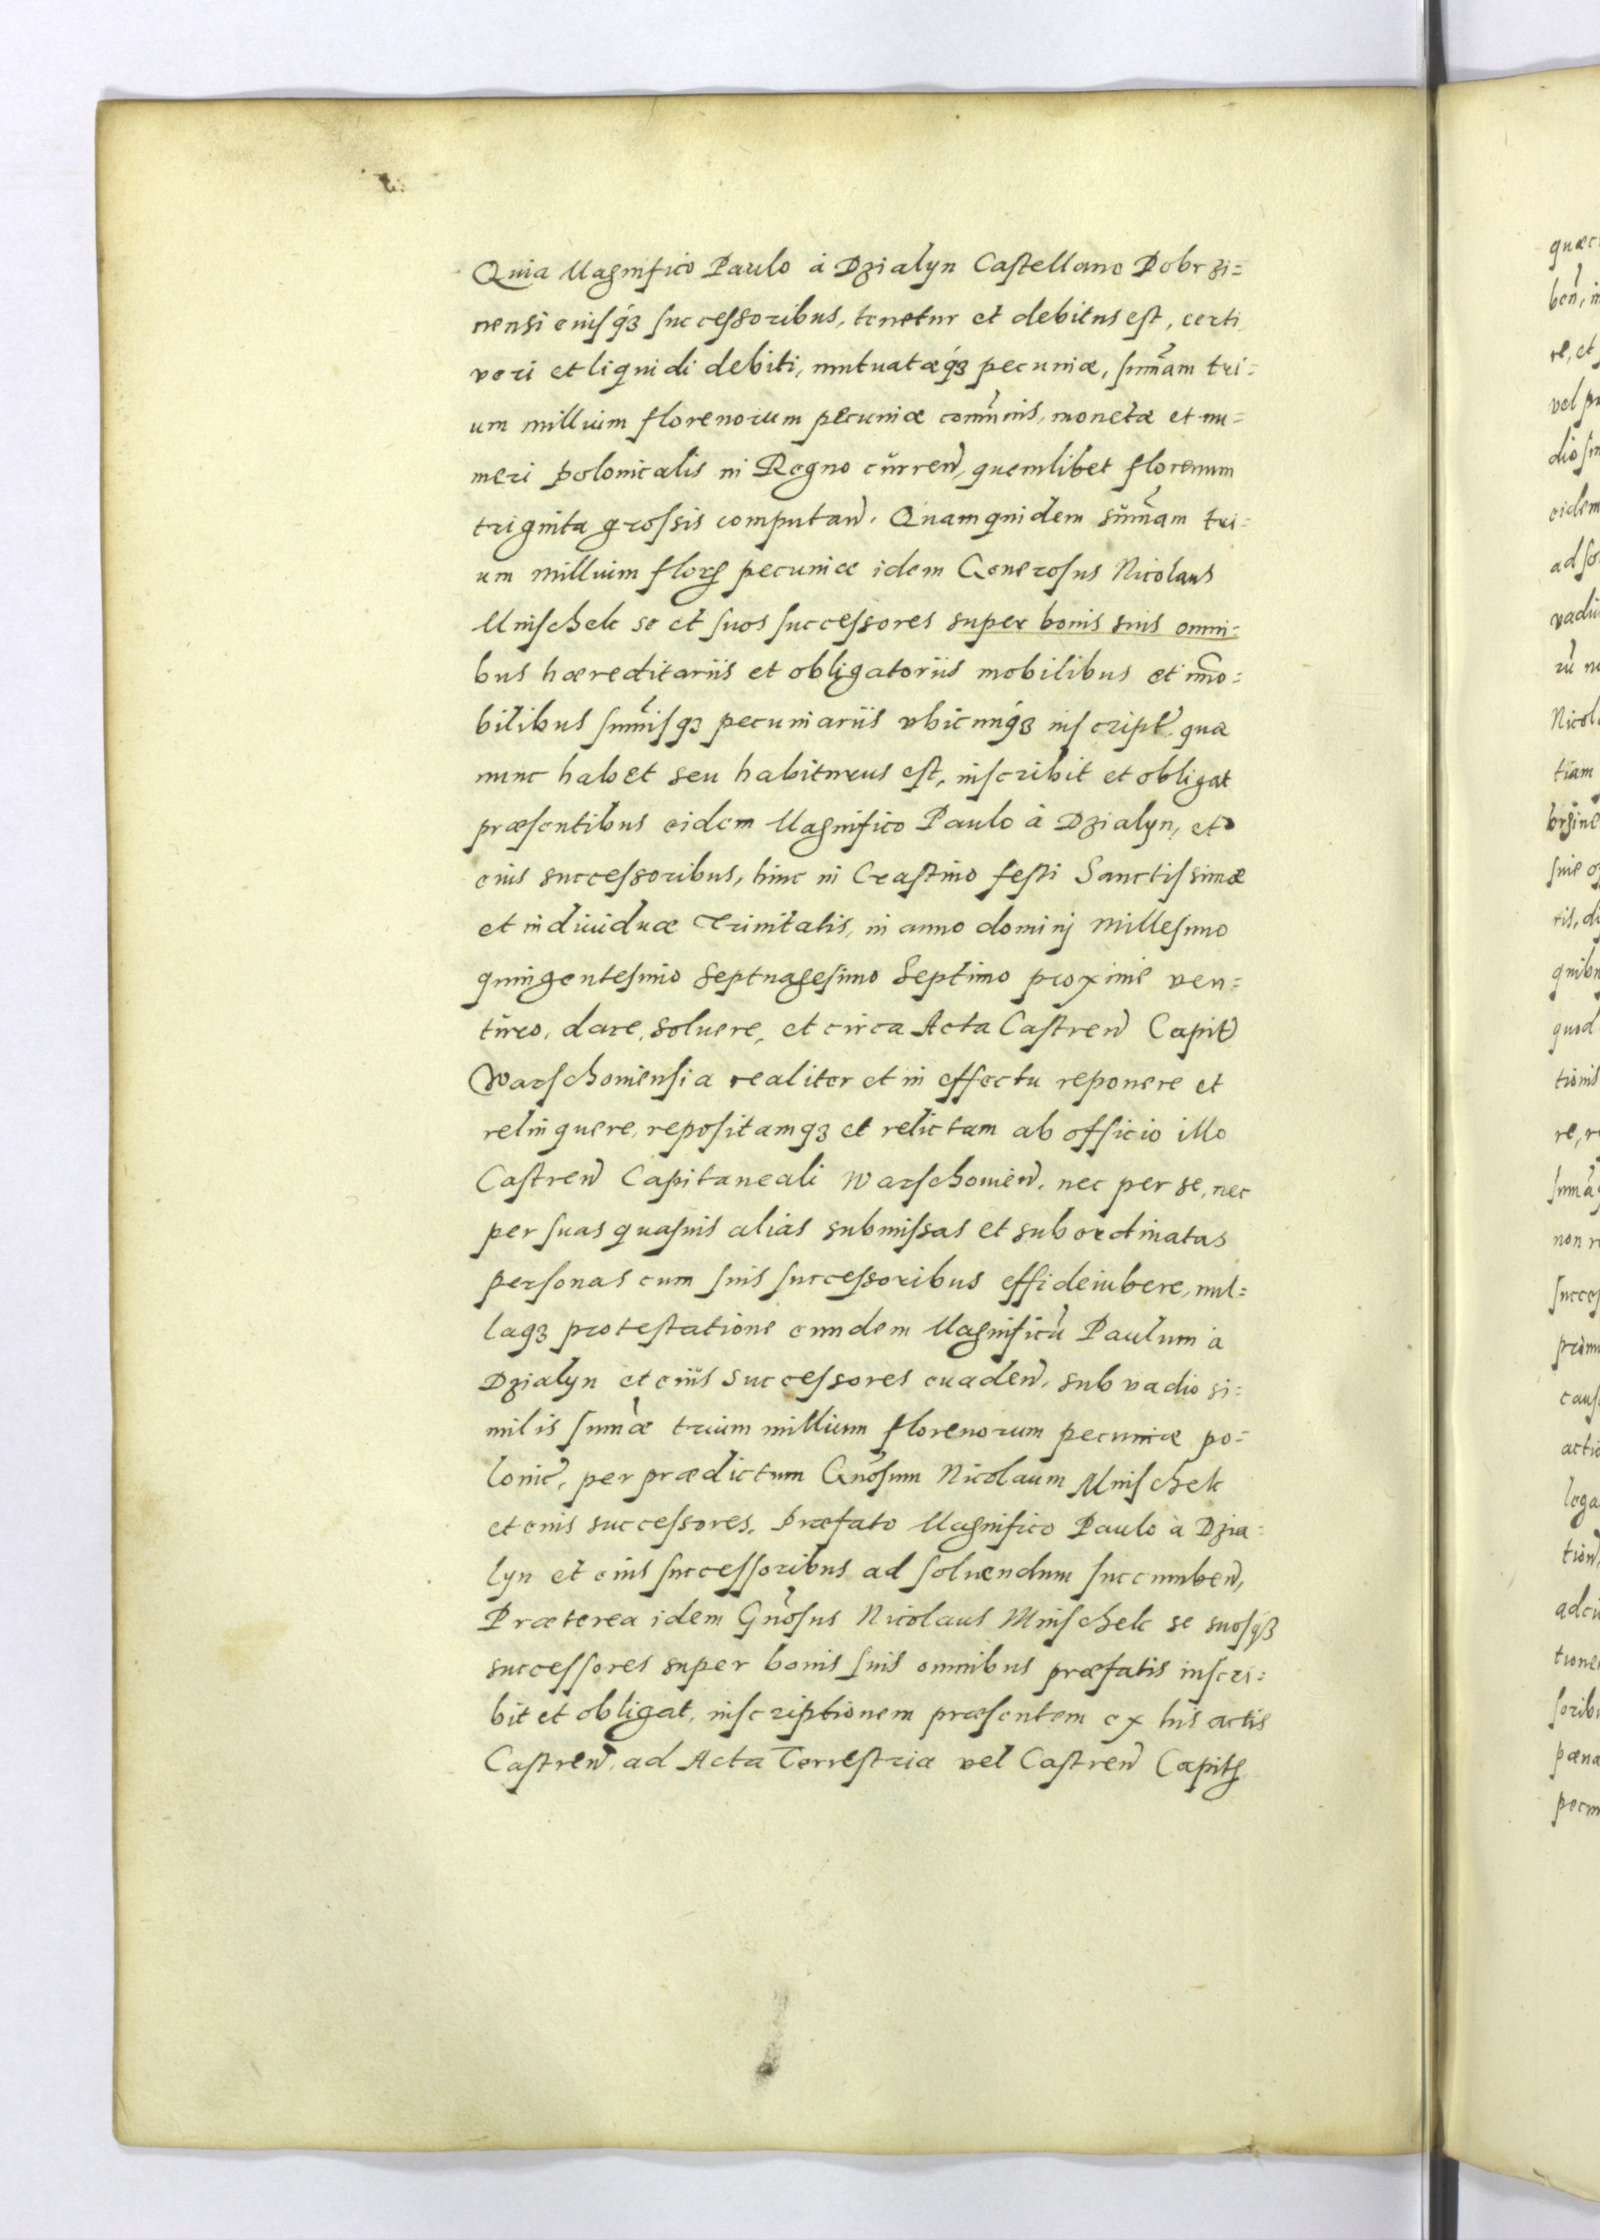 Quia Magnifico Paulo à Dzialyn Castellano Dobrzi=
nensi eiusq́3 successoribus, tenetur et debitus est, certi
veri et liquidi debiti, mutuatæq́3 pecuniæ, sum̃am tri=
um millium florenorum pecuniæ com̃unis, monetæ et nu=
meri polonicalis in Regno cŭrreñ, quemlibet florenum
triginta grossis computañ. Quamquidem sŭm̃am tri=
um millium flor̃ pecuniæ idem Generosus Nicolaus
Mnischek se et suos successores super bonis suis omni=
bus hæreditariis et obligatoriis mobilibus et im̃o=
bilibus sum̃isq3 pecuniariis vbicunq́3 inscript̃. quæ
nunc habet seu habiturus est, inscribit et obligat
præsentibus eidem Magnifico Paulo à Dzialyn, et
eius successoribus, hinc in Crastino festi Sanctissimæ
et indiuiduæ Trinitatis, in anno dominj Millesimo
quingentesimo Septuagesimo Septimo proxime ven=
tŭro, dare, soluere, et circa Acta Castreñ Capit̃
Warschouiensia realiter et in effectu reponere et
relinquere, repositamq3 et relictam ab officio illo
Castreñ Capitaneali Warschouieñ. nec per se, nec
per suas quasuis alias submissas et subordinatas
personas cum suis successoribus effideiubere, nul=
laq3 protestatione eundem Magnificũ Paulum à
Dzialyn et eiŭs successores euadeñ, sub vadio si=
milis sum̃æ trium millium florenorum pecuniæ po=
lonic̃, per prædictum Gñosum Nicolaŭm Mnischek
et eius successores, præfato Magnifico Paulo à Dzia=
lyn et eius successoribus ad soluendum succumbeñ,
Præterea idem Gñosus Nicolaus Mnischek se suosq́3
successores super bonis suis omnibus præfatis inscri=
bit et obligat, inscriptionem præsentem ex his actis
Castreñ, ad Acta Terrestria vel Castreñ Capit̃